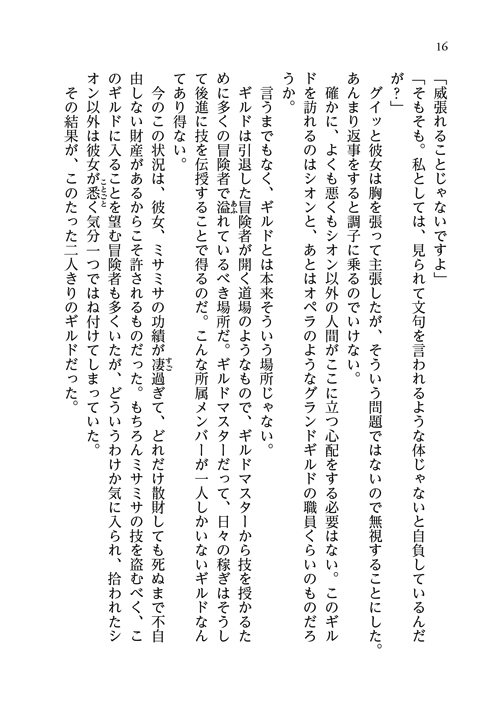 16
「威張れることじゃないですよ」
「そもそも。私としては、見られて文句を言われるような体じゃないと自負しているんだ
が？」
グイッと彼女は胸を張って主張したが、そういう問題ではないので無視することにした。
あんまり返事をすると調子に乗るのでいけない。
確かに、よくも悪くもシオン以外の人間がここに立つ心配をする必要はない。このギル
ドを訪れるのはシオンと、あとはオペラのようなグランドギルドの職員くらいのものだろ
うか。
言うまでもなく、ギルドとは本来そういう場所じゃない。
ギルドは引退した冒険者が開く道場のようなもので、ギルドマスターから技を授かるた
めに多くの冒険者で溢れているべき場所だ。ギルドマスターだって、日々の稼ぎはそうし
て後進に技を伝授することで得るのだ。こんな所属メンバーが一人しかいないギルドなん
てあり得ない。
今のこの状況は、彼女、ミサミサの功績が凄過ぎて、どれだけ散財しても死ぬまで不自
由しない財産があるからこそ許されるものだった。もちろんミサミサの技を盗むべく、こ
のギルドに入ることを望む冒険者も多くいたが、どういうわけか気に入られ、拾われたシ
オン以外は彼女が悉く気分一つではね付けてしまっていた。
その結果が、このたった二人きりのギルドだった。